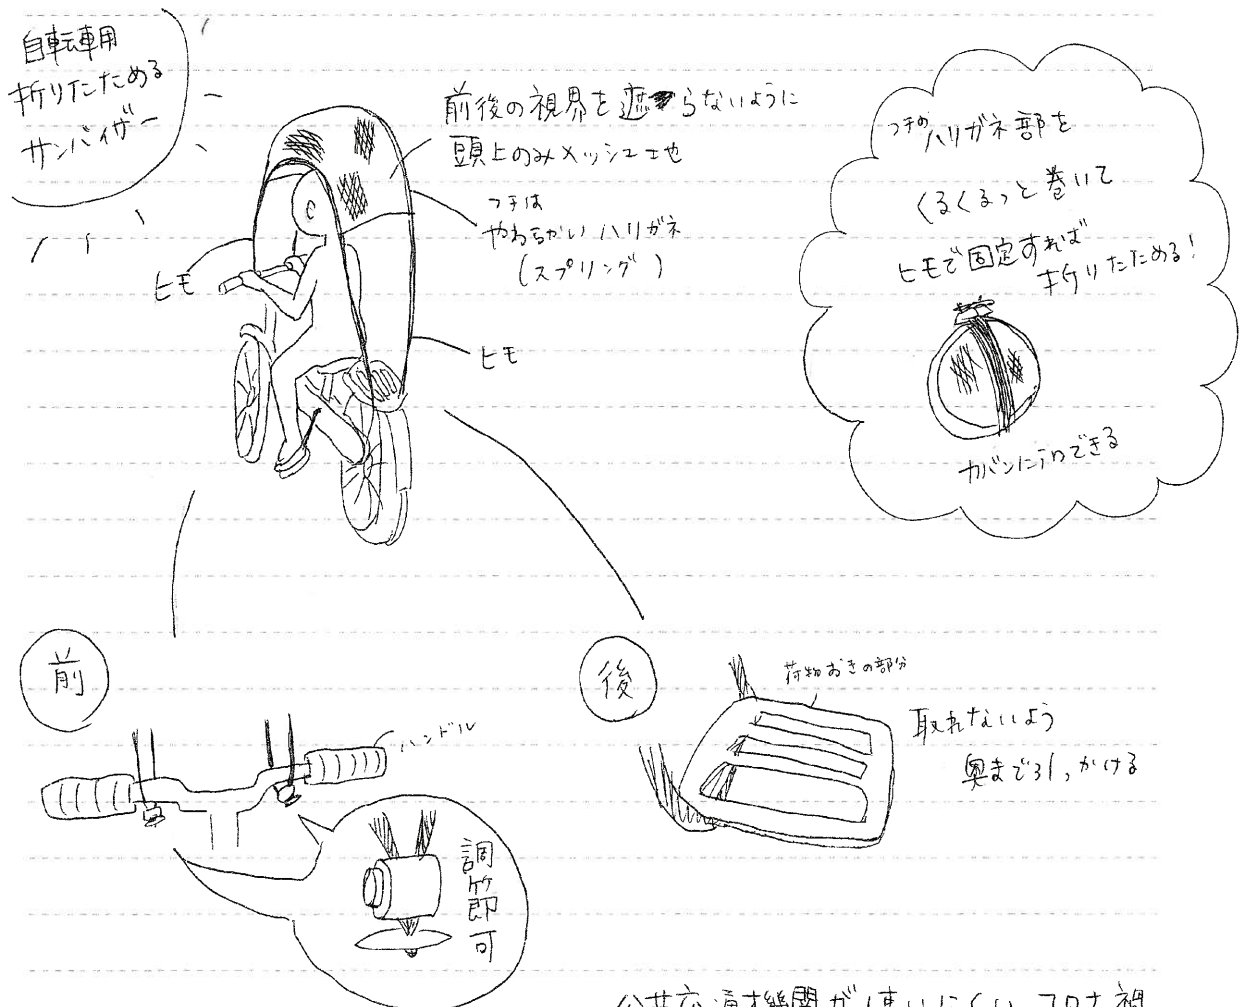 自転車用
折りたためる
サンバイザー
前後の視界を遮らないように
頭上のみメッシュ土也
フチは
やわらかい ハリガネ
(スプリング)
ヒモ
ヒモ
フチのハリガネ部を
くるくるっと巻いて
ヒモで固定すれば
折りたためる!
カバンに可できる
前
ハンドル
調節可
後
荷物おきの部分
取れないよう
奥まで引っかける
公共交通機関が使いにくいコロナ禍